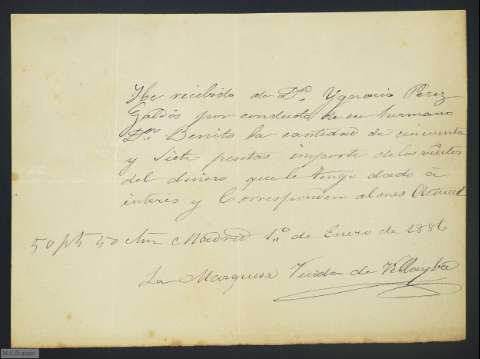 He recibido de Dn. Ygnacio Pérez
Galdós por conducto de su hermano
Dn. Benito la cantidad de cincuenta
y siete pesetas importe de los réditos
del dinero que le tengo dado á
interés y corresponden al mes Actual
Madrid 1º de Enero de 1886
La Marquesa Viuda de Villaytre